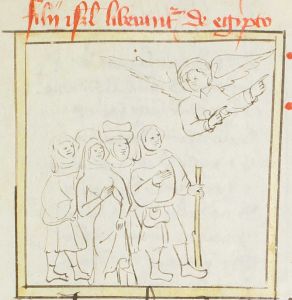 filij isrl liberantr de egipto